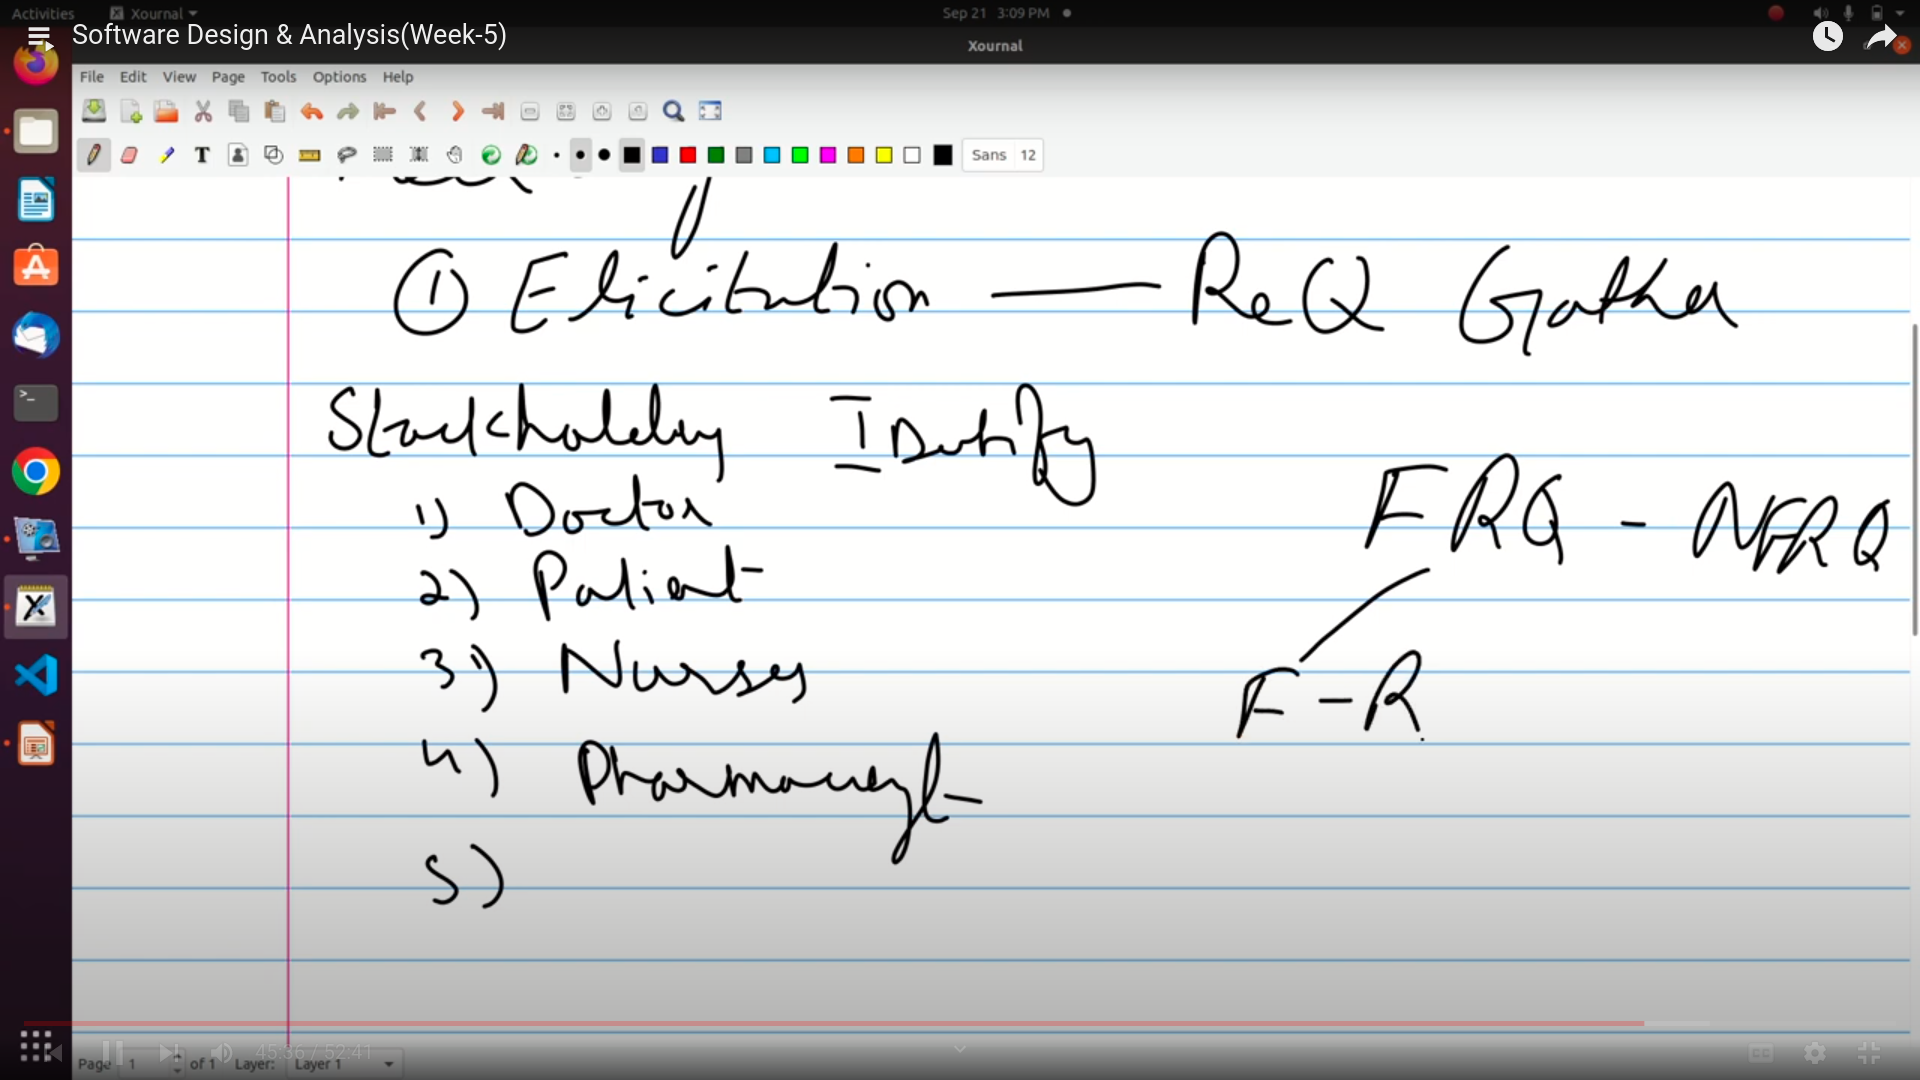 Activities Xournal Sep 21 3:09 PM
Software Design & Analysis(Week-5)
Xournal
File Edit View Page Tools Options Help
T Sans 12
① Elicitation — ReQ Gather
Stackholders IDentify
1) Doctor
FRQ - NFRQ
2) Patient
3) Nurses
F-R
4) Pharmacyst
5)
45:36 / 52:41
CC
Page 1 of 1 Layer: Layer 1